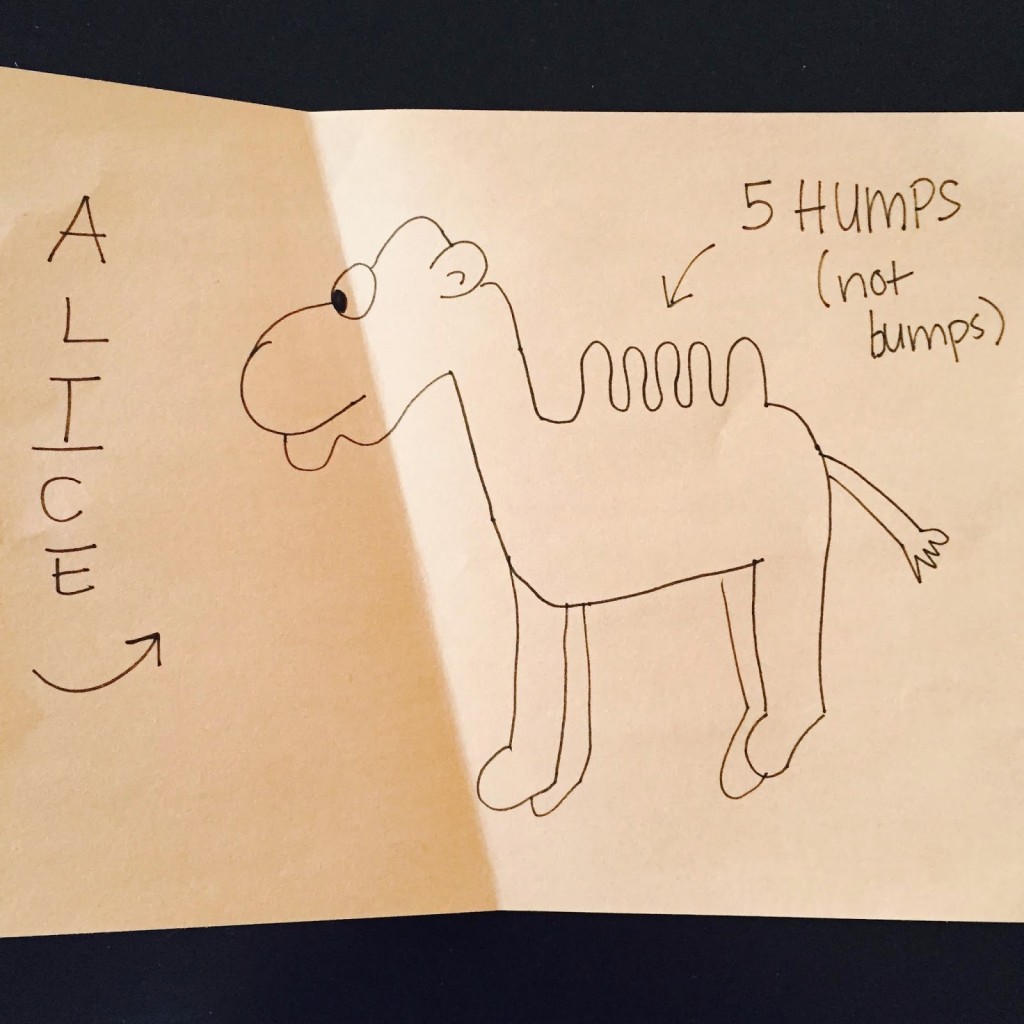 ALICE
5 HUMPS
(not
bumps)